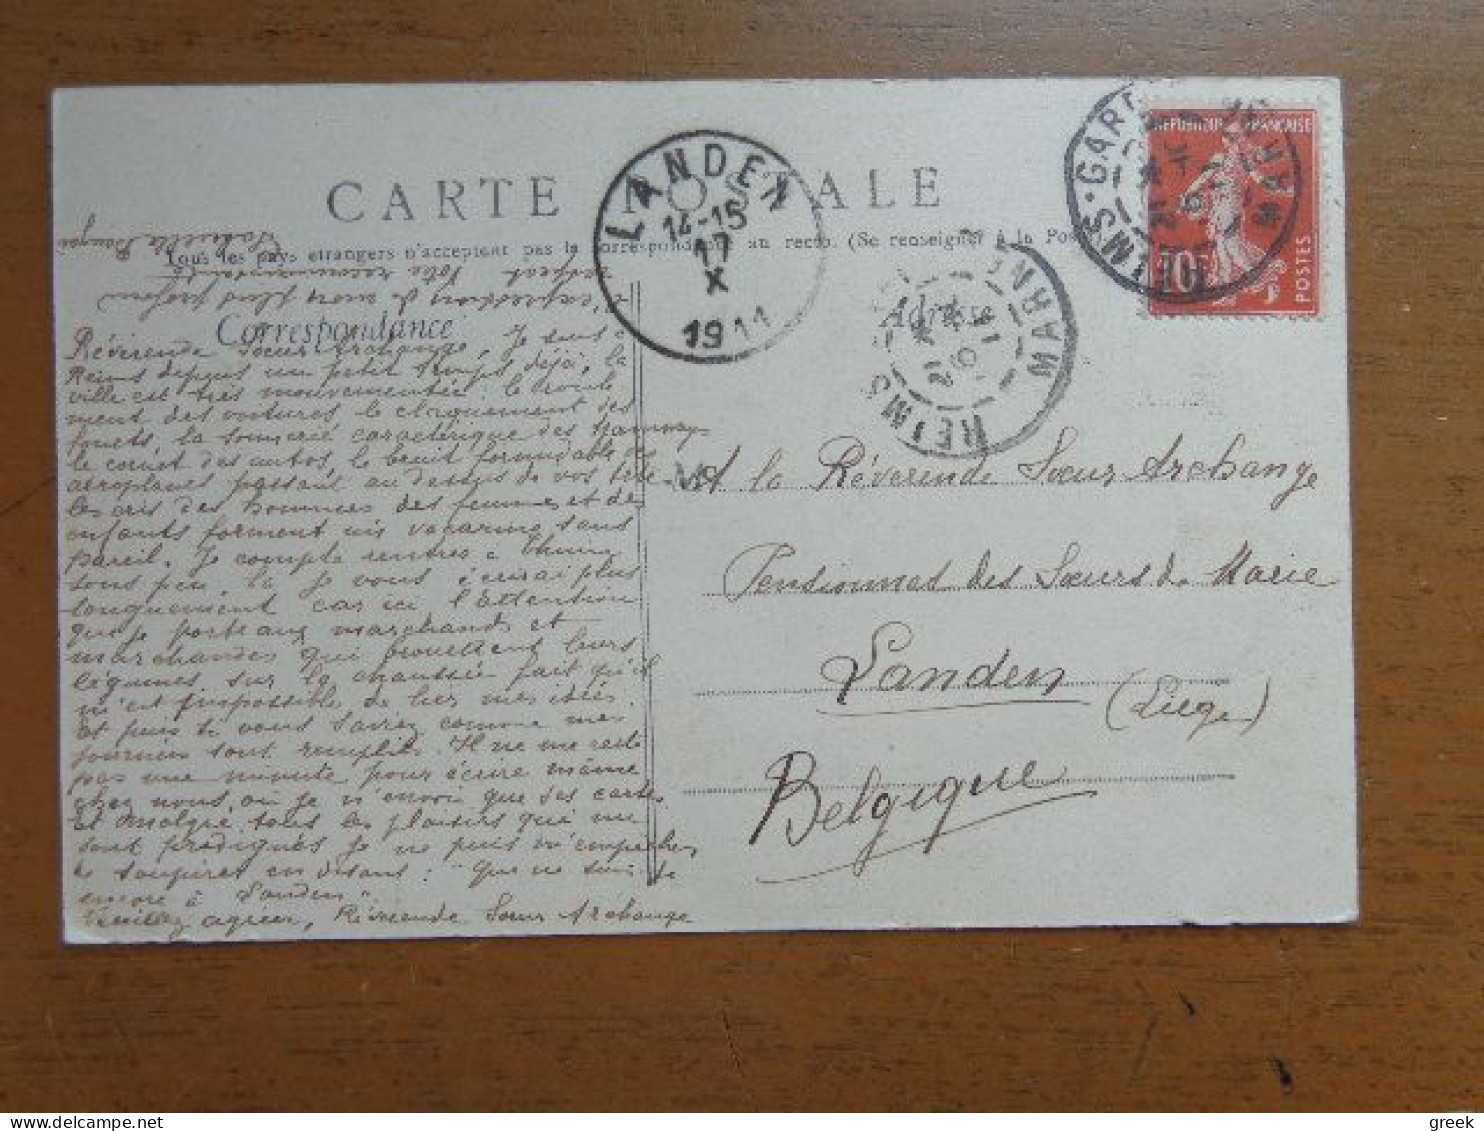 CARTE POSTALE
Tous les pays étrangers n'acceptent pas la correspondance au recto. (Se renseigner à la Pos
Correspondance
Adresse
LANDEN
14-15
17
X
1911
REIMS
MARNE
REIMS-GARE
MARNE
REPUBLIQUE FRANÇAISE
10c
POSTES
Révérende Sœur Archange, Je suis à
Reims depuis un petit temps déjà, la
ville est très mouvementée: le roule
ment des voitures le claquement des
fouets, la sonnerie caractérique des tramways
le cornet des autos, le bruit formidable des
aéroplanes passant au dessus de vos têtes
les cris des hommes des femmes et des
enfants forment un vacarme sans
pareil. Je compte rentrer à
sous peu, là je vous écrirai plus
longuement car ici l'attention
que je porte aux marchands et
marchandes qui brouettent leurs
légumes sur la chaussée fait qu'il
m'est impossible de lier mes idées.
Et puis si vous saviez comme mes
journées sont remplies. Il ne me reste
pas une minute pour écrire même
chez nous, où je n'envoie que des cartes
et malgré tous les plaisirs qui me
sont prodigués je ne puis m'empêcher
de soupirer en disant: "Que ne suis-je
encore à Landen".
Veuillez agréer, Révérende Sœur Archange
l'expression de mon plus profond
respect. Votre reconnaissante
A la Révérende Sœur Archange
Pensionnat des Sœurs de Marie
Landen
(Liège)
Belgique
greek
Delcampe.net